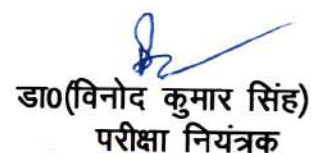 डा0(विनोद कुमार सिंह)
परीक्षा नियंत्रक